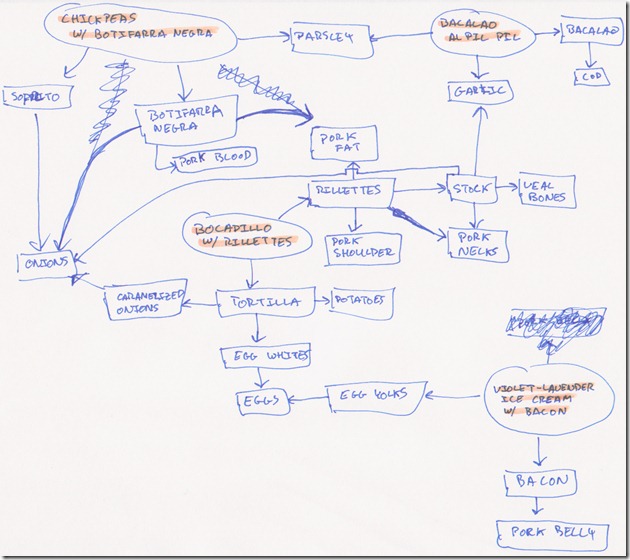 CHICKPEAS
W/ BOTIFARRA NEGRA
PARSLEY
BACALAO
AL PIL PIL
BACALAO
COD
SOFRITO
GARLIC
BOTIFARRA
NEGRA
PORK BLOOD
PORK
FAT
RILLETTES
STOCK
VEAL
BONES
BOCADILLO
W/ RILLETTES
PORK
SHOULDER
PORK
NECKS
ONIONS
CARAMELIZED
ONIONS
TORTILLA
POTATOES
EGG WHITES
EGGS
EGG YOLKS
VIOLET-LAVENDER
ICE CREAM
W/ BACON
BACON
PORK BELLY